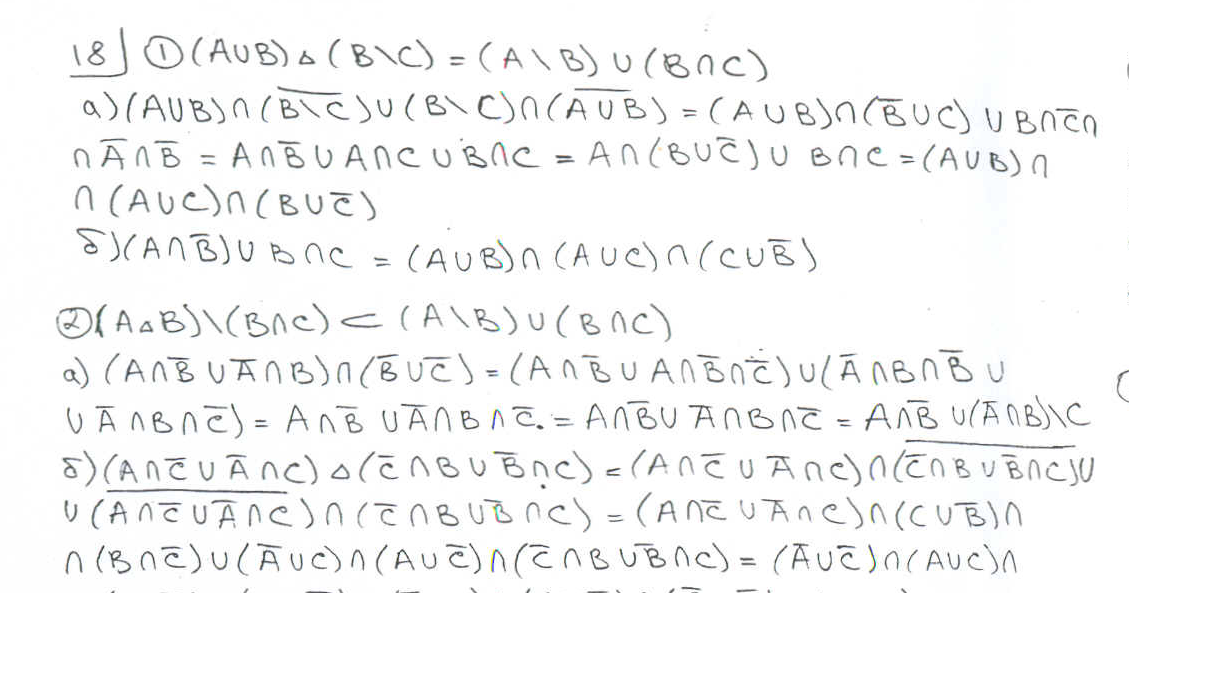 18] ① (A∪B) ▵ (B\C) = (A\B) ∪ (B∩C)
а) (A∪B)∩(B̅\̅C̅)∪(B\C)∩(A̅∪̅B̅) = (A∪B)∩(B̅∪C) ∪ B∩C̅∩
∩ A̅∩B̅ = A∩B̅ ∪ A∩C ∪ B∩C = A∩(B∪C̅)∪ B∩C = (A∪B)∩
∩ (A∪C)∩(B∪C̅)
б) (A∩B̅)∪ B∩C = (A∪B)∩(A∪C)∩(C∪B̅)
② (A▵B)\(B∩C) ⊂ (A\B)∪(B∩C)
а) (A∩B̅ ∪ A̅∩B)∩(B̅∪C̅) = (A∩B̅ ∪ A∩B̅∩C̅)∪(A̅∩B∩B̅ ∪
∪ A̅∩B∩C̅) = A∩B̅ ∪A̅∩B∩C̅. = A∩B̅∪ A̅∩B∩C̅ = A∩B̅ ∪(A̅∩B)\C
б) (A∩C̅ ∪ A̅∩C) ▵ (C̅∩B ∪ B̅∩C) = (A∩C̅ ∪ A̅∩C)∩(C̅∩B ∪ B̅∩C)∪
∪ (A∩C̅∪A̅∩C)∩(C̅∩B∪B̅∩C) = (A∩C̅ ∪A̅∩C)∩(C∪B̅)∩
∩ (B∩C̅)∪(A̅∪C)∩(A∪C̅)∩(C̅∩B∪B̅∩C) = (A̅∪C̅)∩(A∪C)∩